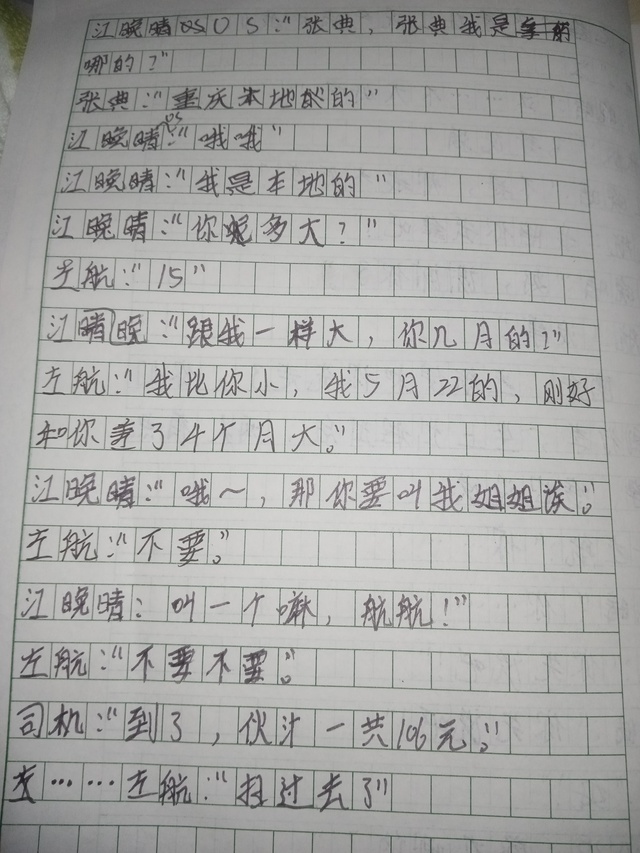 江晚晴OS:“张典,张典我是
哪的?”
张典:“重庆本地的”
江晚晴OS:“哦哦”
江晚晴:“我是本地的”
江晚晴:“你多大?”
左航:“15”
江晴晚:“跟我一样大,你几月的?”
左航:“我比你小,我5月22的,刚好
和你差了4个月大。”
江晚晴:“哦~,那你要叫我姐姐诶。”
左航:“不要。”
江晚晴:叫一个嘛,航航!”
左航:“不要不要。”
司机:“到了,伙计一共106元。”
左……左航:“扫过去了”